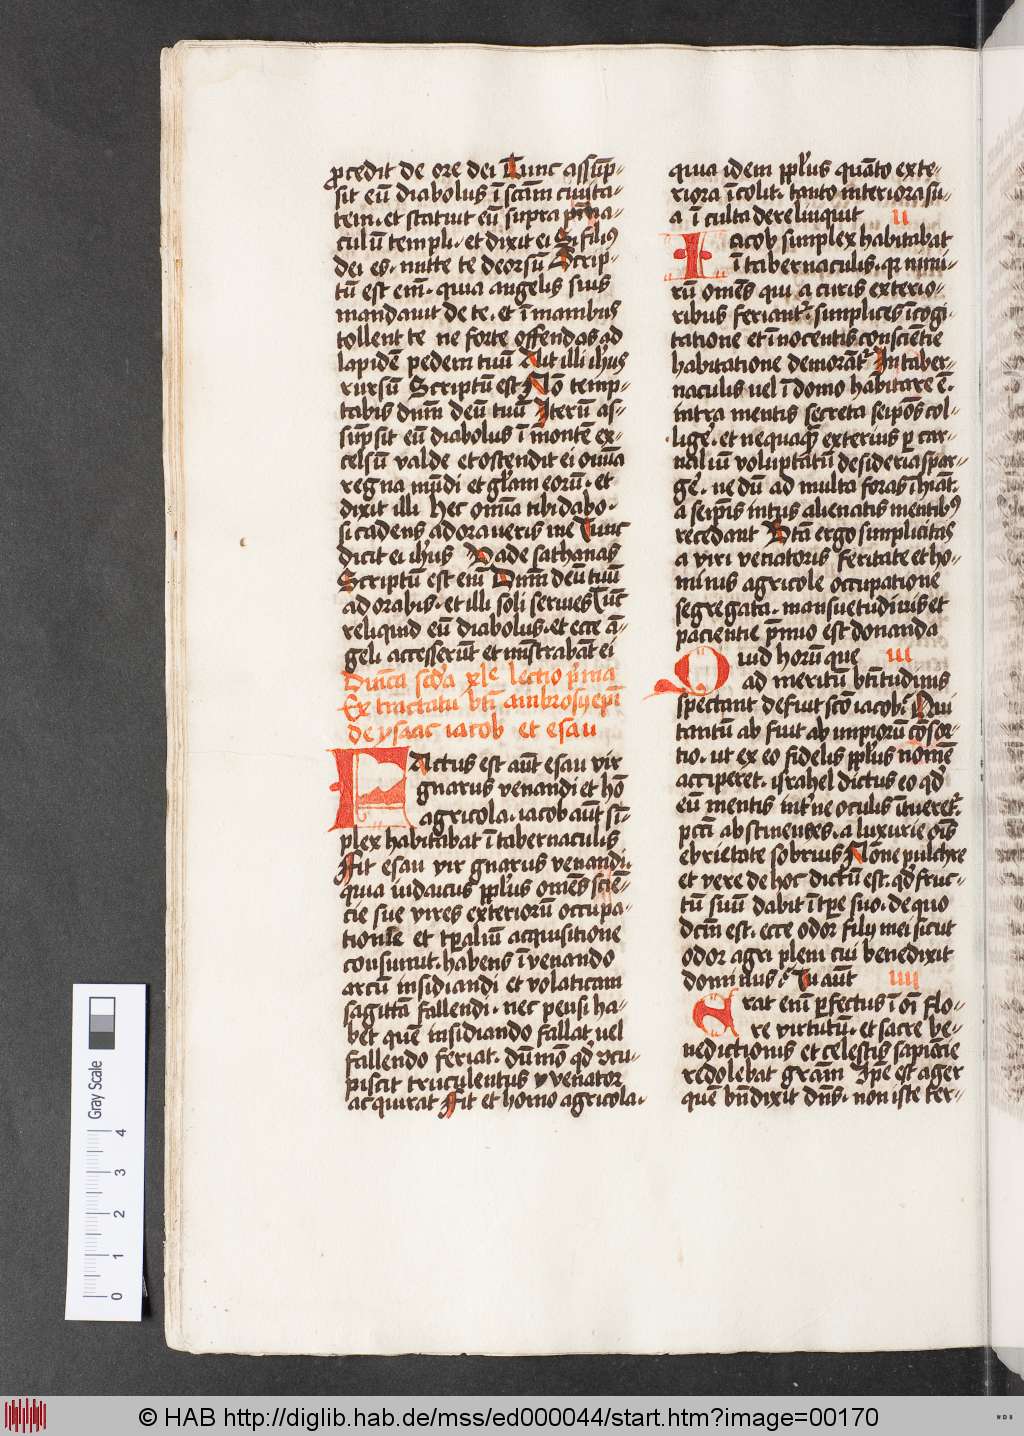 ꝓcedit de ore dei Tunc assūp-
sit eū diabolus ī scām ciuita-
tem. et statuit eū supra pīna-
culū templi. et dixit ei Si filiꝰ
dei es. mitte te deorsū Scrip-
tū est em̄. quia angelis suis
mandauit de te. et ī manibus
tollent te ne forte offendas ad
lapidē pedem tuū Ait illi ihus
rursū Scriptū est Nō temp-
tabis dn̄m deū tuū Iterū as-
sūpsit eū diabolus ī montē ex-
celsū valde et ostendit ei om̄a
regna mūdi et gl̄am eorū. et
dixit illi Hec om̄a tibi dabo.
si cadens adoraueris me Tunc
dicit ei ihus Vade sathanas
Scriptū est em̄ Dn̄m deū tuū
adorabis. et illi soli seruies Tūc
reliquid eū diabolus. et ecce ā-
geli accesserūt et mīstrabāt ei
Dn̄ica scd̄a xl̄e lectio p̄ma
Ex tractatu bt̄i ambrosij ep̄i
de ysaac iacob et esau
FActus est aūt esau vir
gnarus venandi et hō
agricola. iacob aūt sī-
plex habitabat ī tabernaculis
Fit esau vir gnarus venandi.
quia iudaicus ppl̄us om̄es sciē-
cie sue vires exteriorū occupa-
tionie et tp̄aliū acquisitione
consumit. habens ī venando
arcū insidiandi et volaticam
sagittā fallendi. nec pensi ha-
bet quē insidiando fallat uel
fallendo feriat. dūmō qd̄ ꝯcu-
piscit truculentus ꝩ venator
acquirat Fit et homo agricola.
quia idem ppl̄us quāto exte-
riora īcolit. tanto interiora su-
a ī culta derelinquit ii
Iacob simplex habitabat
ī tabernaculis. qr nimi-
rū om̄es qui a curis exterio-
ribus feriant᷑. simplices ī cogi
tatione et īnocentis conscientie
habitatione demorāt᷑ In taber-
naculis uel ī domo habitare ē.
intra mentis secreta seip̄os col-
lige᷑. et nequaq̄ exterius ꝑ car-
naliū voluptatū desideria spar-
ge᷑. ne dū ad multa foras īhiāt.
a seip̄is intus alienatis mentibꝰ
recedant Btā ergo simplicitas
a viri venatoris feritate et ho-
minis agricole occupatione
segregata. mansuetudinis et
paciencie p̄mio est donanda
Quid horū que iii
ad meritū bt̄itudinis
spectant defuit scō iacob᷑ Qui
tantū abfuit ab impiorū cōsor-
tio. ut ex eo fidelis ppl̄us nomē
acciperet. israhel dictus eo qd̄
eū mentis int᷑ne oculis īueret᷑.
pctī abstinens. a luxurie oīs
ebrietate sobrius Nōne pulchre
et vere de hoc dictū est. qd̄ fruc-
tū suū dabit ī tp̄e suo. de quo
dcm̄ est. ecce odor filij mei sicut
odor agri pleni cui benedixit
dominus᷑ Tu aūt iiii
Erat em̄ ꝑfectus ī oī flo-
re virtutū. et sacre be-
nedictionis et celestis sapiēcie
redolebat gr̄am Ip̄e est ager
quē bn̄dixit dn̄s. non iste ter-
Gray Scale
4
3
2
1
0
© HAB http://diglib.hab.de/mss/ed000044/start.htm?image=00170